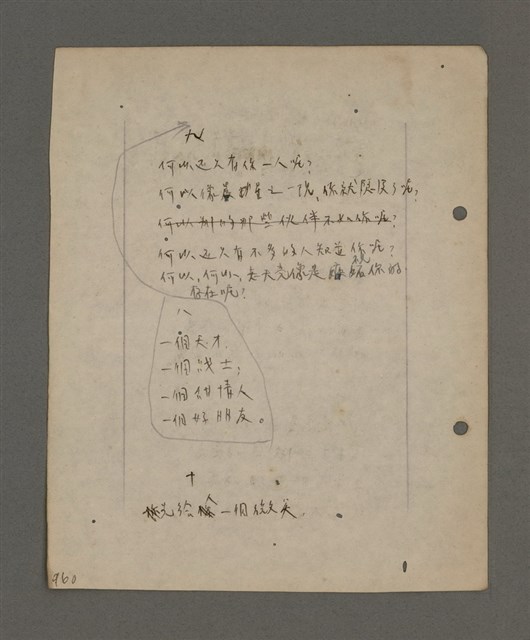 九
何以還只有你一人呢?
何以像最 星之一現,你就隱沒了呢?
何以 的那些伙伴不如你呢?
何以還只有不多的人知道你呢?
何以,何以,老天竟像是 你的
存在呢?
八
一個天才,
一個 士,
一個 情人
一個好朋友。
十
給 一個微笑
960